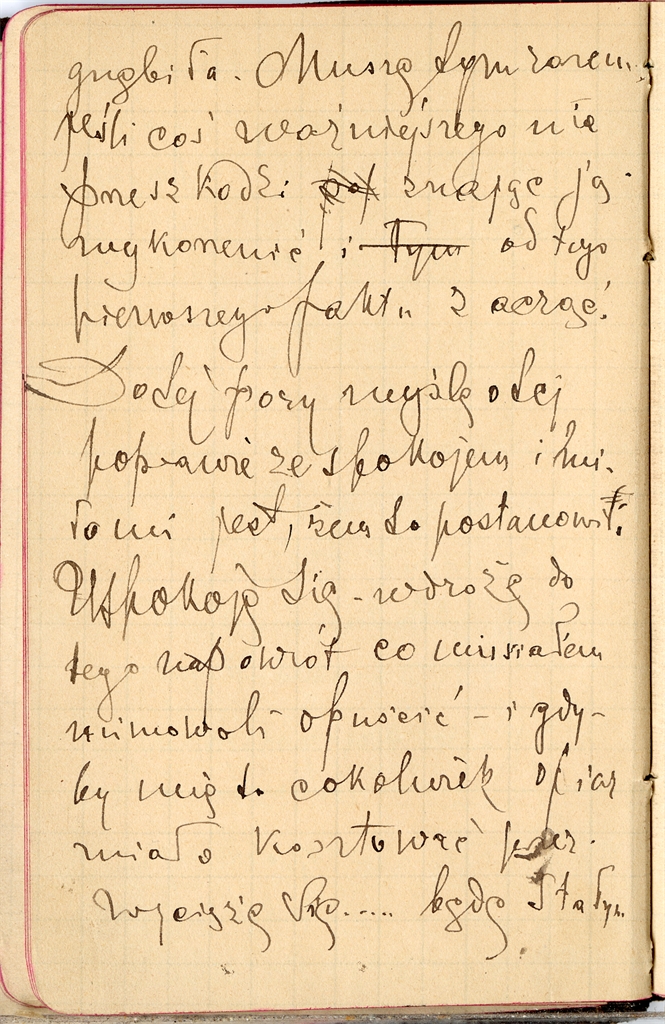 gnębiła. Muszę tym razem
jeśli coś ważniejszego nie
przeszkodzi znając ją
wykorzenić i tym od tego
pierwszego faktu zacząć.
Do tej pory myślę o tej
poprawie ze spokojem i mi-
ło mi jest, żem to postanowił.
Uspokoję się - wdrożę do
tego napowrót co musiałem
mimowoli opuścić - i gdy-
by mię to cokolwiek ofiar
miało kosztować prze-
zwyciężę się.... będę stałym